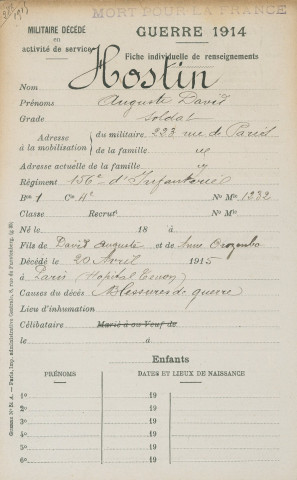 MORT POUR LA FRANCE
MILITAIRE DÉCÉDÉ
en
activité de service
GUERRE 1914
Fiche individuelle de renseignements
Nom Hostin
Prénoms Auguste David
Grade Soldat
Adresse à la mobilisation { du militaire 223 rue de
de la famille
Adresse actuelle de la famille
Régiment 156e d'Infanterie
Bon 1 Cie 4e No Mle 1232
Classe Recrut No Mle
Né le 18 à
Fils de David Auguste et de Anne
Décédé le 20 Avril 1915
à Paris (Hôpital Tenon)
Causes du décès Blessures de guerre
Lieu d'inhumation
Célibataire Marié à ou Veuf de
le à
Enfants
PRÉNOMS DATES ET LIEUX DE NAISSANCE
1o 19
2o 19
3o 19
4o 19
5o 19
6o 19